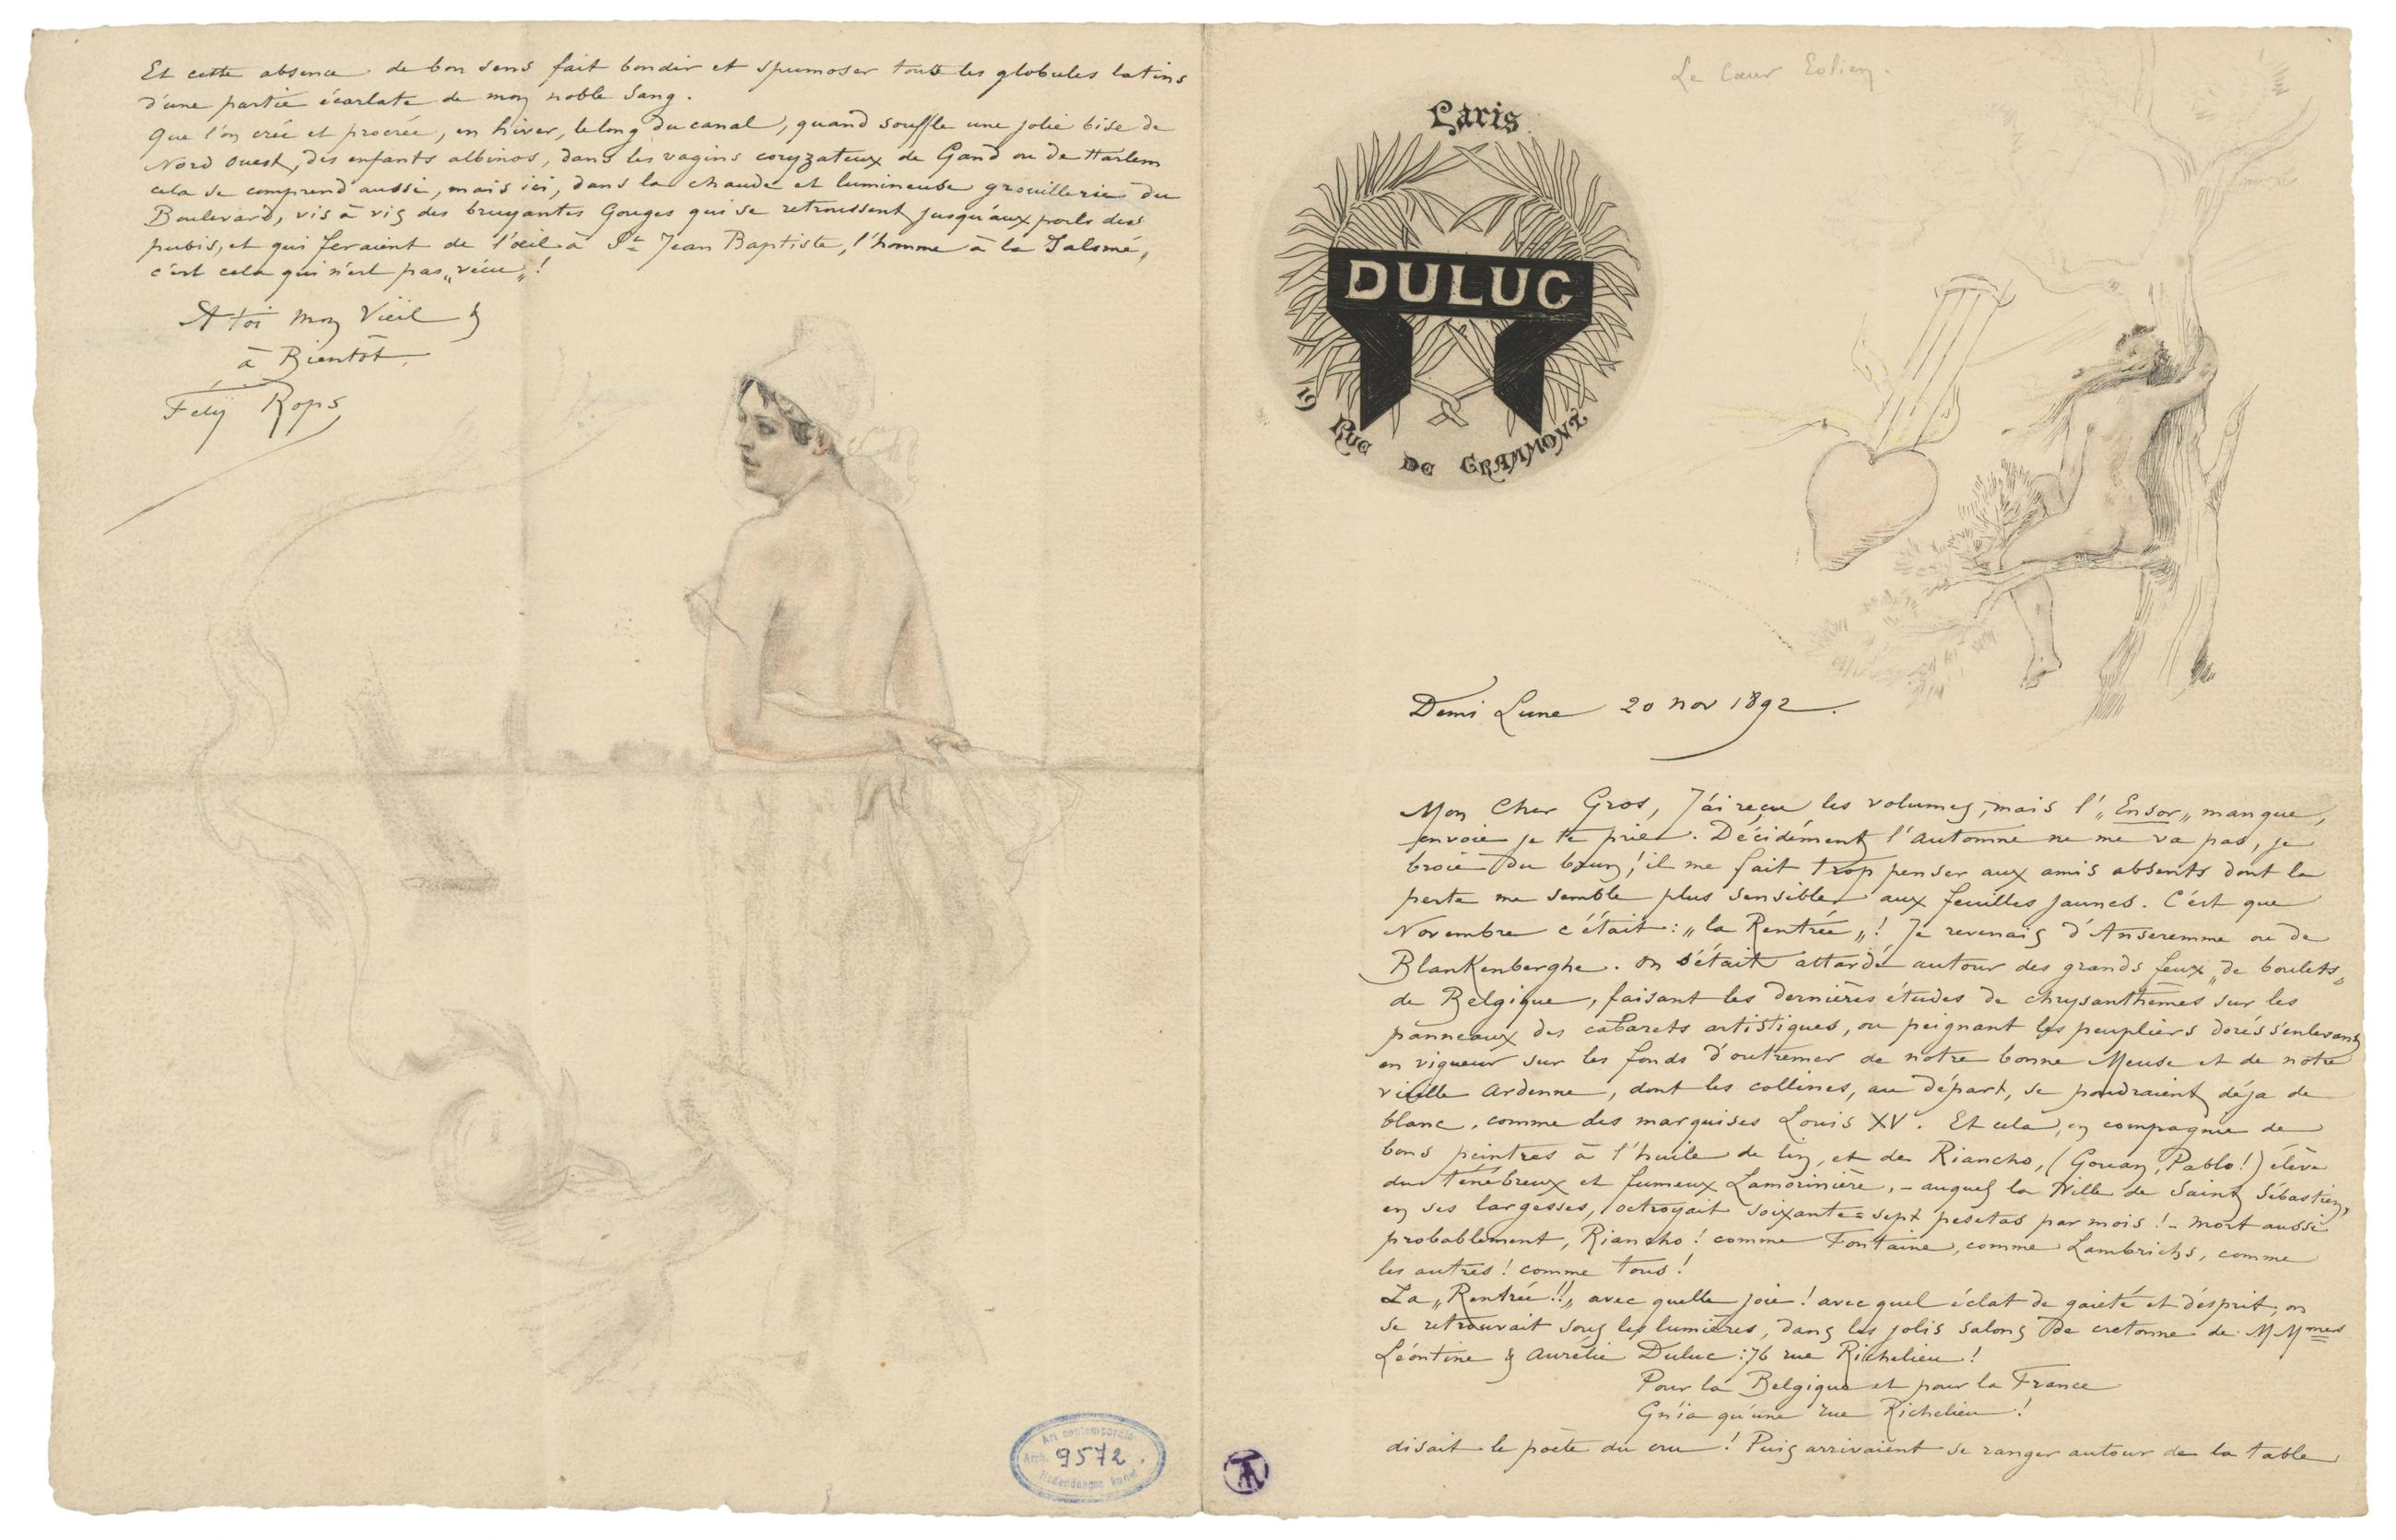 Et cette absence de bon sens fait bondir et spumoser tous les globules latins
d'une partie écarlate de mon noble sang.
Que l'on crée et procrée, en hiver, le long du canal, quand souffle une jolie bise de
Nord Ouest, des enfants albinos, dans les vagins coryzateux de Gand ou de Harlem
cela se comprend aussi, mais ici, dans la chaude et lumineuse grouillerie du
Boulevard, vis à vis des bruyantes Gouges qui se retroussent jusqu'aux poils des
pubis, et qui feraient de l'œil à St Jean Baptiste, l'homme à la Salomé,
c'est cela qui n'est pas „vécu„!
A toi mon Vieil &
à Bientôt.
Fély Rops
Le Cœur Eolien.
Paris
DULUC
19 RUE DE GRAMMONT
Demi Lune 20 nov 1892.
Mon Cher Gros, J'ai reçu les volumes, mais l'„Ensor„ manque,
envoie je te prie. Décidément l'automne ne me va pas, je
broie du brun! il me fait trop penser aux amis absents dont la
perte me semble plus sensible aux feuilles jaunes. C'est que
Novembre c'était: „la Rentrée„! Je revenais d'Anseremme ou de
Blankenberghe. On s'était attardé autour des grands feux „de boulets„
de Belgique, faisant les dernières études de chrysanthèmes sur les
panneaux des cabarets artistiques, ou peignant les peupliers dorés s'enlevant
en vigueur sur les fonds d'outremer de notre bonne Meuse et de notre
vieille Ardenne, dont les collines, au départ, se poudraient déja de
blanc, comme des marquises Louis XV. Et cela, en compagnie de
bons peintres à l'huile de lin, et de Riancho, (Gouan, Pablo!) élève
du ténébreux et fumeux Lamorinière, - auquel la Ville de Saint Sébastien,
en ses largesses, octroyait soixante=sept pesetas par mois! - mort aussi
probablement, Riancho! comme Fontaine, comme Lambrichs, comme
les autres! comme tous!
La „Rentrée!!„ avec quelle joie! avec quel éclat de gaieté et d'esprit, on
se retrouvait sous les lumières, dans les jolis salons de cretonne de MMmes
Léontine & Aurélie Duluc: 76 rue Richelieu!
Pour la Belgique et pour la France
Gn'ia qu'une rue Richelieu!
disait le poète du cru! Puis arrivaient se ranger autour de la table
Art contemporain
Arch. 9572.
Hedendaagse Kunst